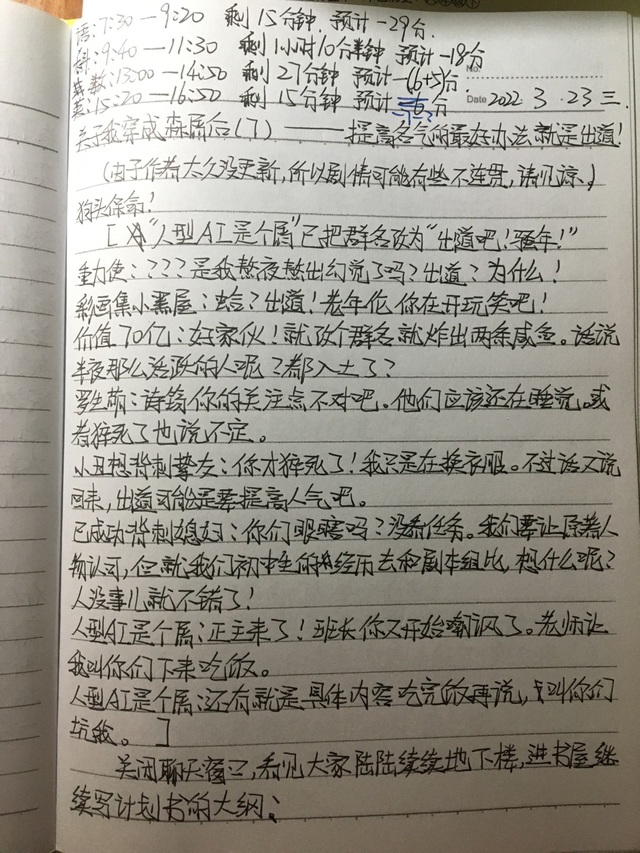 语:7:30—9:20 剩15分钟 预计-29分.
科:9:40—11:30 剩1小时10分半钟 预计-18分
数:13:00—14:50 剩27分钟 预计-(6+5)分
英:15:20—16:50 剩15分钟 预计 分 Date 2022.3.23三.
关于我穿成森屑后(7)——提高名气的最好办法就是出道!
(由于作者太久没更新,所以剧情可能有些不连贯,请见谅.)
狗头保命!
[“人型AI是个屑”已把群名改为“出道吧!骚年!”
重力使:???是我熬夜熬出幻觉了吗?出道?为什么!
彩画集小黑屋:啥?出道!老年化,你在开玩笑吧!
价值70亿:好家伙!就改个群名就炸出两条咸鱼。话说
半夜那么活跃的人呢?都入土了?
罗生萌:请注意你的关注点不对吧。他们应该还在睡觉。或
者猝死了也说不定。
小丑想背刺挚友:你才猝死了!我只是在换衣服。不过话又说
回来,出道可能是要提高人气吧。
已成功背刺媳妇:你们眼瞎吗?没看任务。我们要让原著人
物认可,但就我们初中生的经历去和剧本组比,想什么呢?
人没事儿就不错了!
人型AI是个屑:正主来了!班长你又开始嘲讽了。老师让
我叫你们下来吃饭。
人型AI是个屑:还有就是具体内容吃完饭再说,叫你们
坑我。]
关闭聊天窗口,看见大家陆陆续续地下楼,进书屋继
续写计划书的大纲: